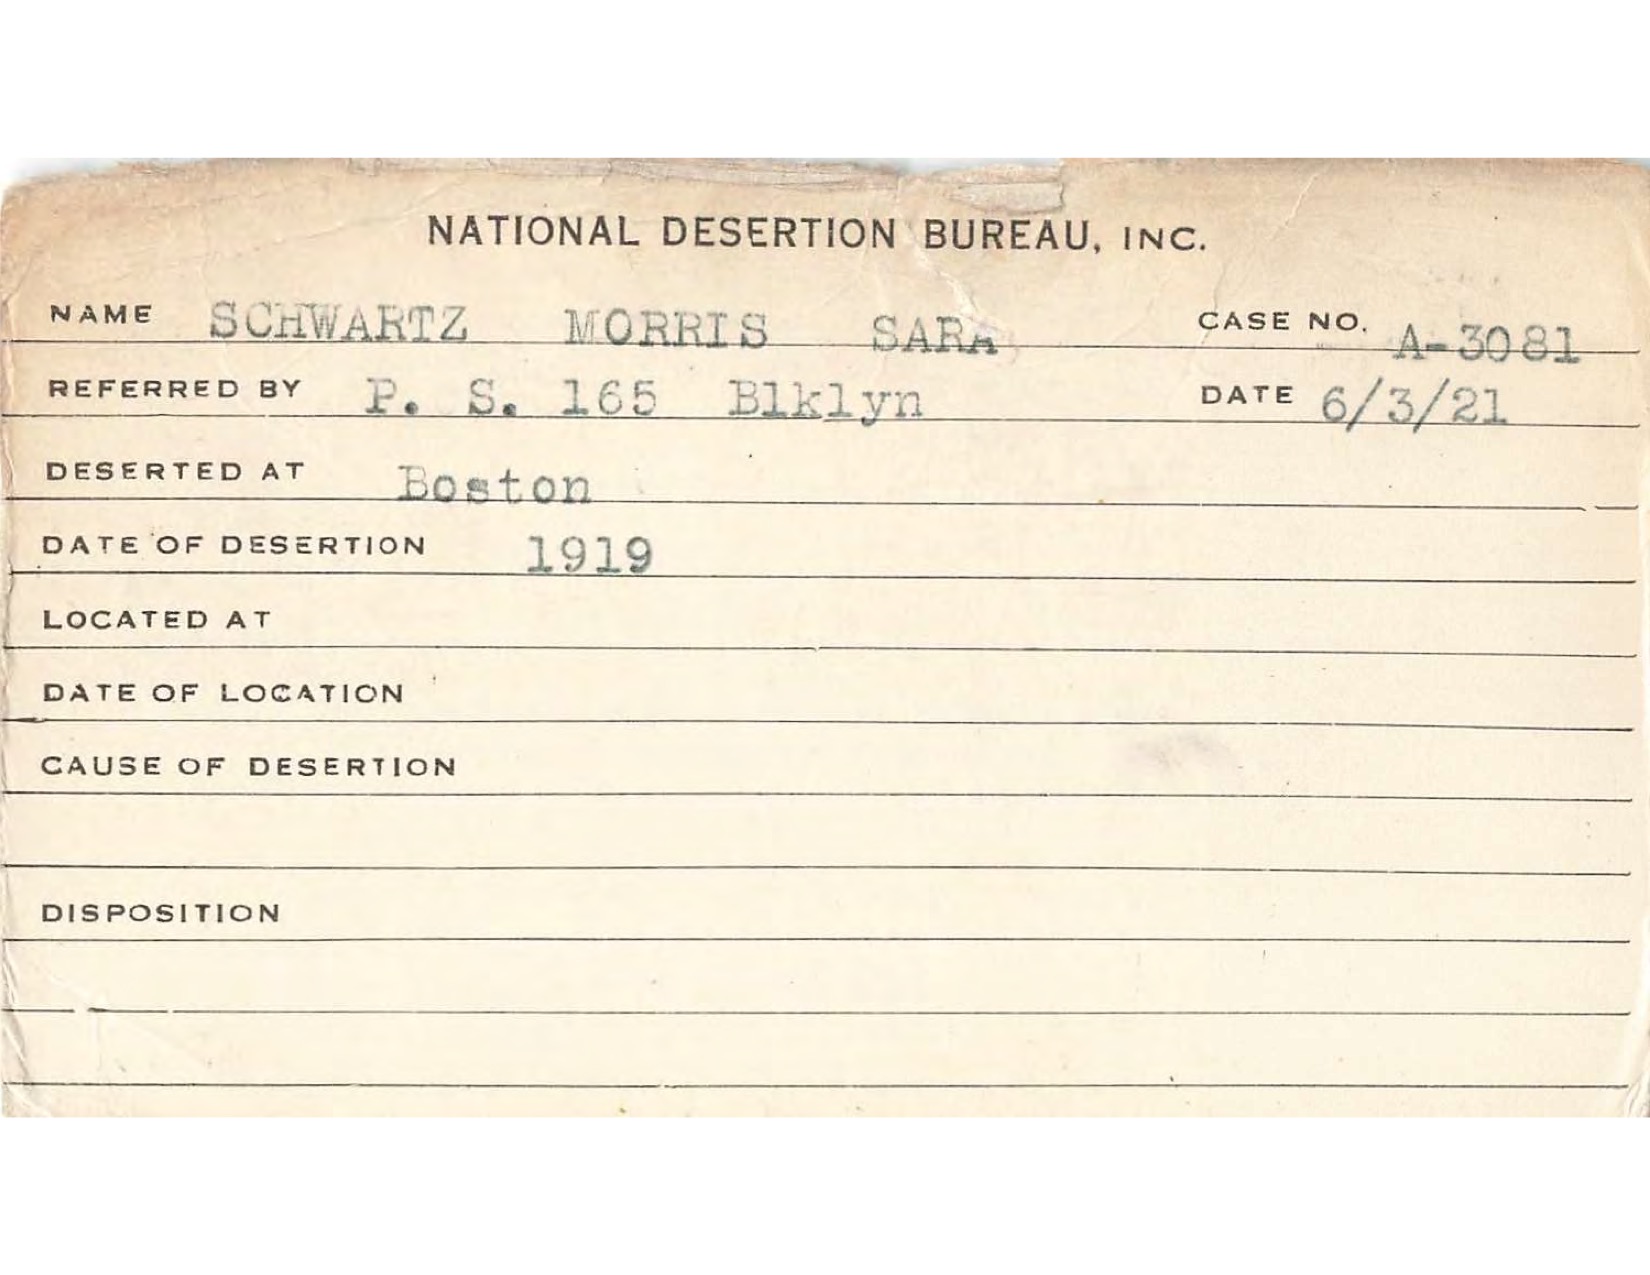 NATIONAL DESERTION BUREAU, INC.
NAME SCHWARTZ MORRIS SARA CASE NO. A-3081
REFERRED BY P. S. 165 Blklyn DATE 6/3/21
DESERTED AT Boston
DATE OF DESERTION 1919
LOCATED AT
DATE OF LOCATION
CAUSE OF DESERTION
DISPOSITION